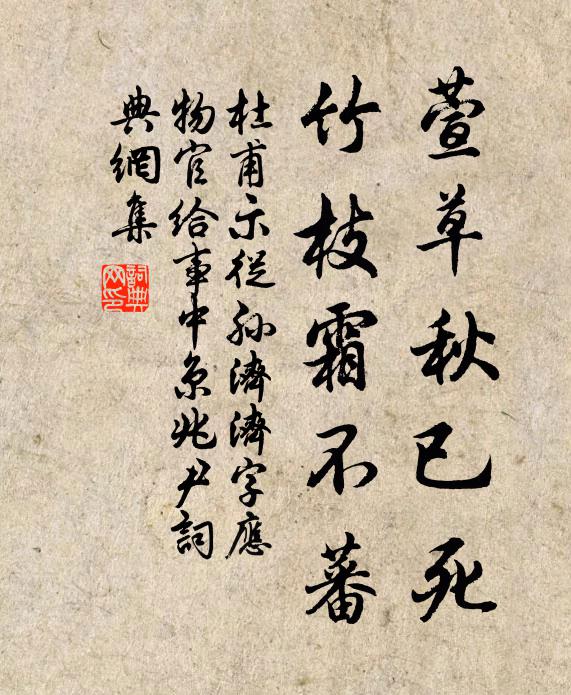 萱草秋已死
竹枝霜不蕃
杜甫示從孫濟濟字應
物官給事中京兆尹詞
典網集
詞典網印